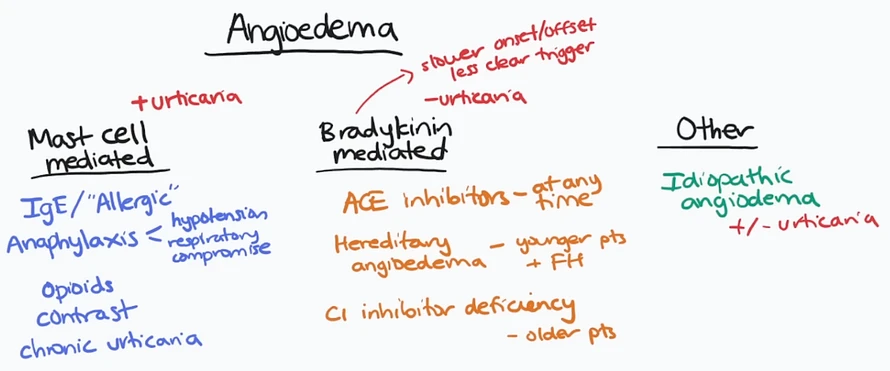 Angioedema
slower onset/offset
less clear trigger
+urticaria
-urticaria
Mast cell
mediated
IgE/"Allergic"
Anaphylaxis < hypotension
respiratory
compromise
Opioids
contrast
chronic urticaria
Bradykinin
mediated
ACE inhibitors - at any
time
Hereditary
angioedema - younger pts
+ FH
C1 inhibitor deficiency
- older pts
Other
Idiopathic
angiodema
+/- urticaria